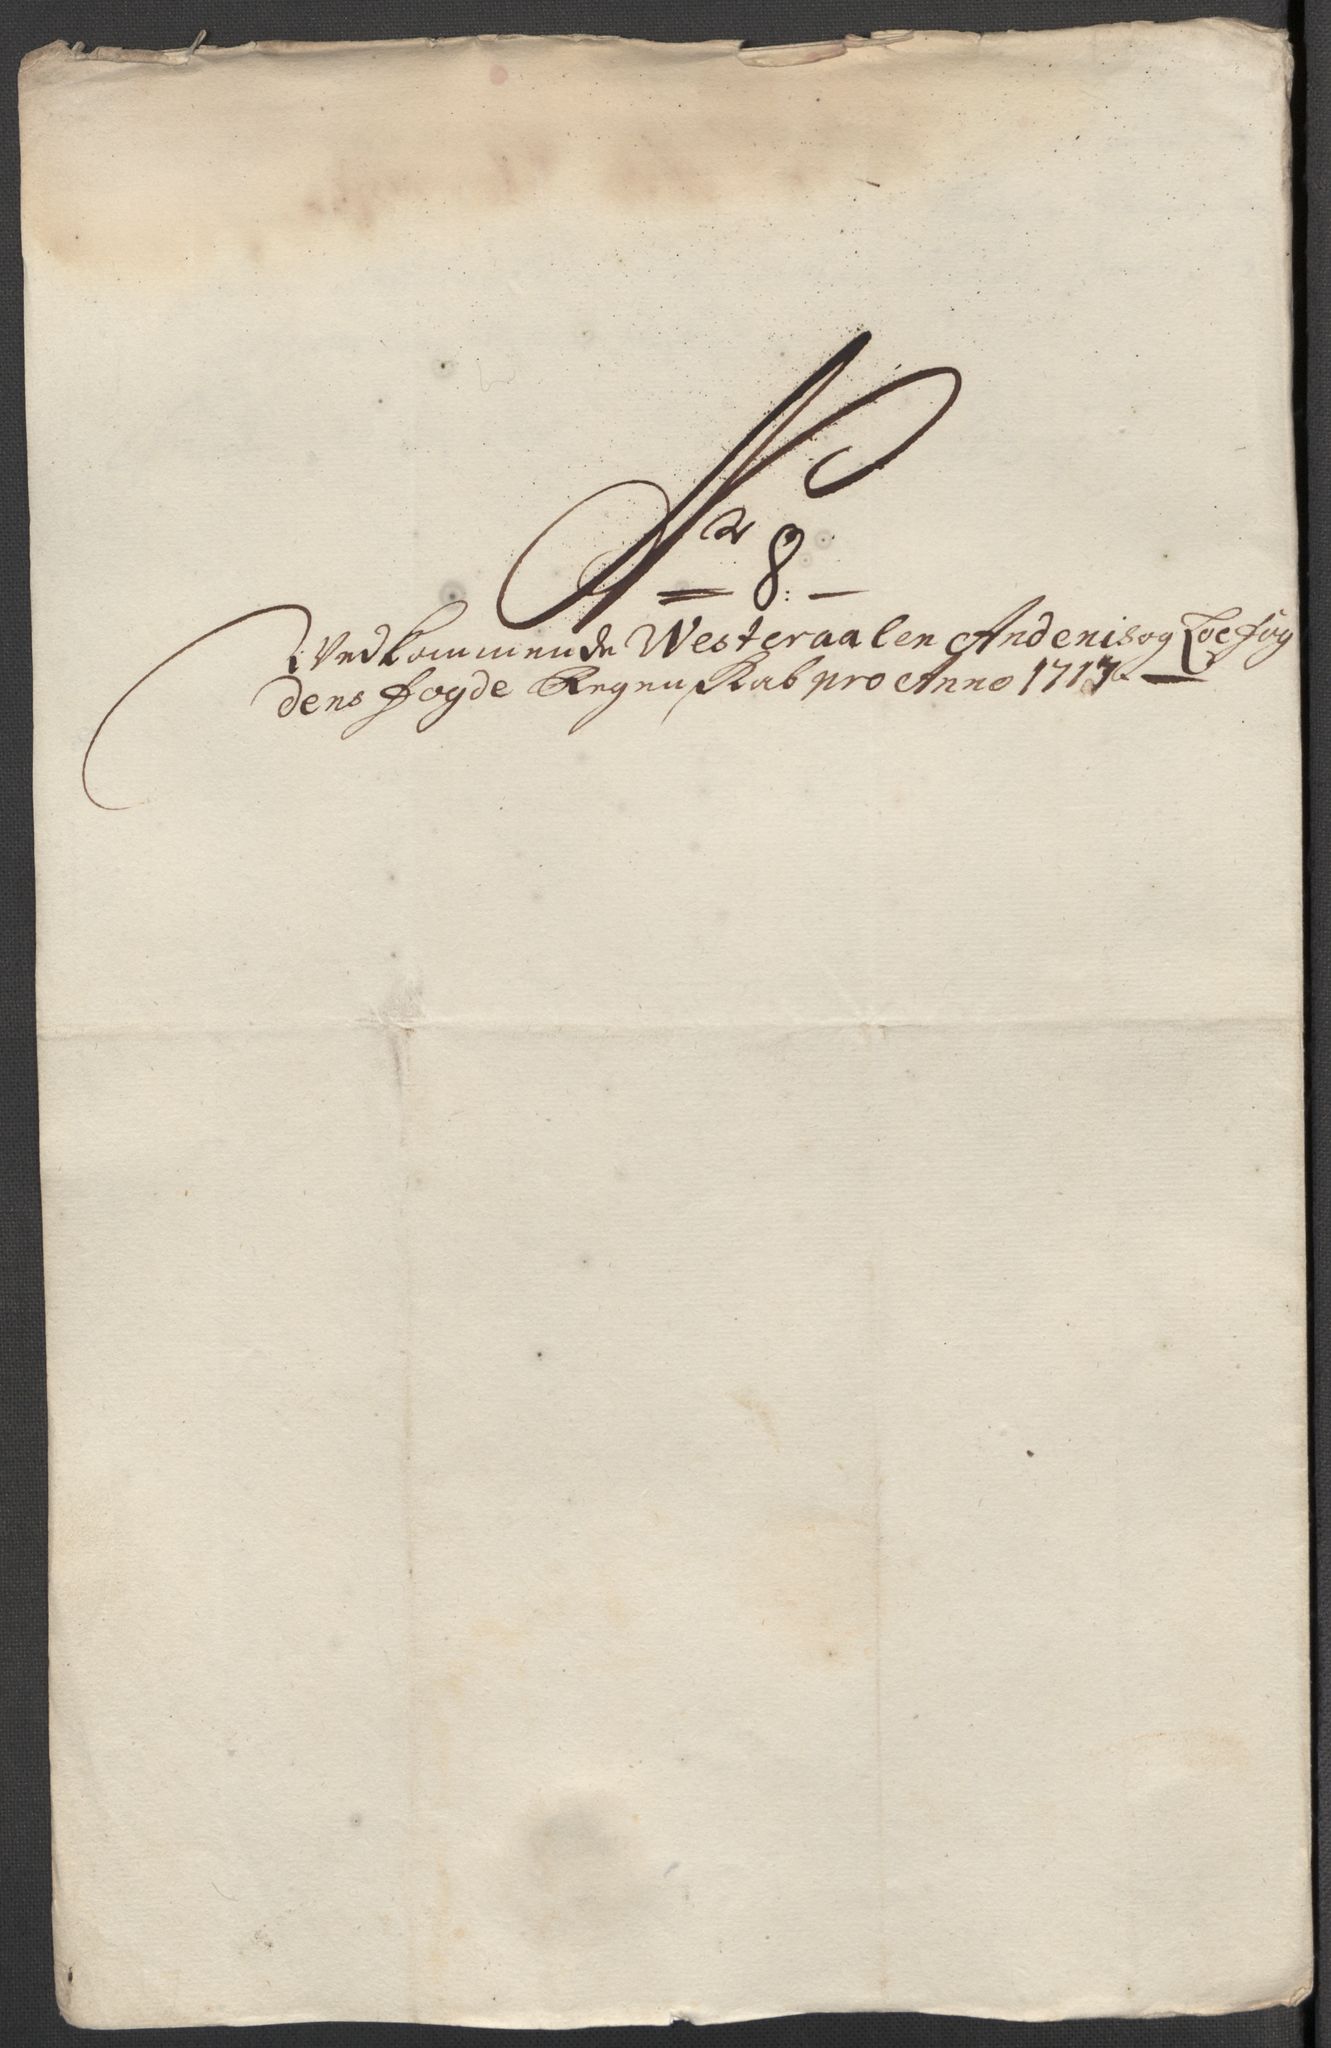 Nr 8.
Vedkommende Westeraalen Andenis og Loefog
dens fogde Regenskab pro Anno 1717.